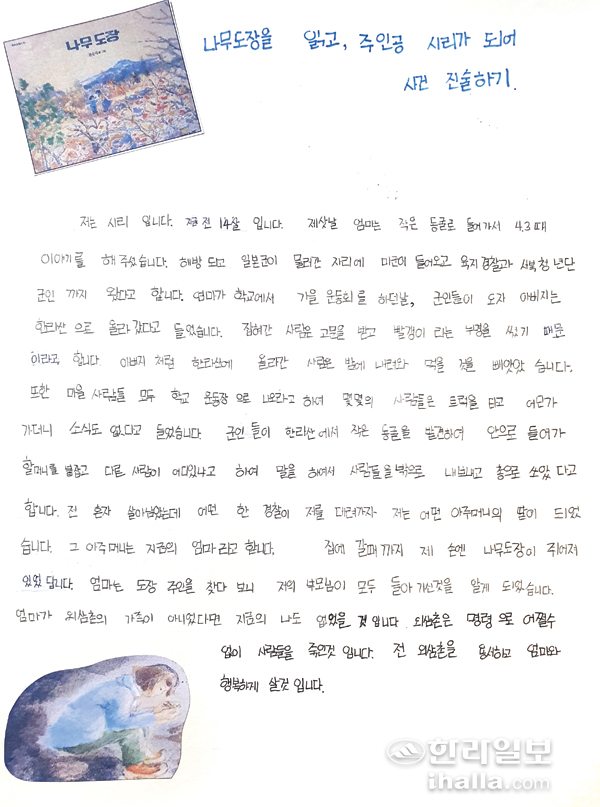 나무도장
나무도장을 읽고, 주인공 시리가 되어
사건 진술하기.
저는 시리 입니다. 전 14살 입니다. 제삿날 엄마는 작은 동굴로 들어가서 4.3 때
이야기를 해 주셨습니다. 해방 되고 일본군이 물러간 자리에 미군이 들어오고 육지 경찰과 서북 청년단
군인 까지 왔다고 합니다. 연마가 학교에서 가을 운동회를 하던날, 군인들이 오자 아버지는
한라산 으로 올라 갔다고 들었습니다. 잡혀간 사람은 고문을 받고 빨갱이 라는 누명을 썼기 때문
이라고 합니다. 아버지 처럼 한라산에 올라간 사람은 밤에 내려와 먹을 것을 빼앗았 습니다.
또한 마을 사람들 모두 학교 운동장 으로 나오라고 하여 몇몇의 사람들은 트럭을 타고 어딘가
가더니 소식도 없다고 들었습니다. 군인 들이 한라산 에서 작은 동굴을 발견하여 안으로 들어가
할머니를 붙잡고 다른 사람이 어디있냐고 하여 말을 하여서 사람들을 밖으로 내보내고 총으로 쏘았 다고
합니다. 전 혼자 살아남았는데 어떤 한 경찰이 저를 데려가자 저는 어떤 아주머니의 딸이 되었
습니다. 그 아주머니는 지금의 엄마 라고 합니다. 집에 갈때 까지 제 손엔 나무도장이 쥐어져
있었 답니다. 엄마는 도장 주인을 찾다 보니 저의 부모님이 모두 돌아 가신것을 알게 되었습니다.
엄마가 외삼촌의 가족이 아니었다면 지금의 나도 없었을 것 입니다 외삼촌은 명령 으로 어쩔수
없이 사람들을 죽인것 입니다. 전 외삼촌을 용서하고 엄마와
행복하게 살것 입니다.
한라일보
ihalla.com